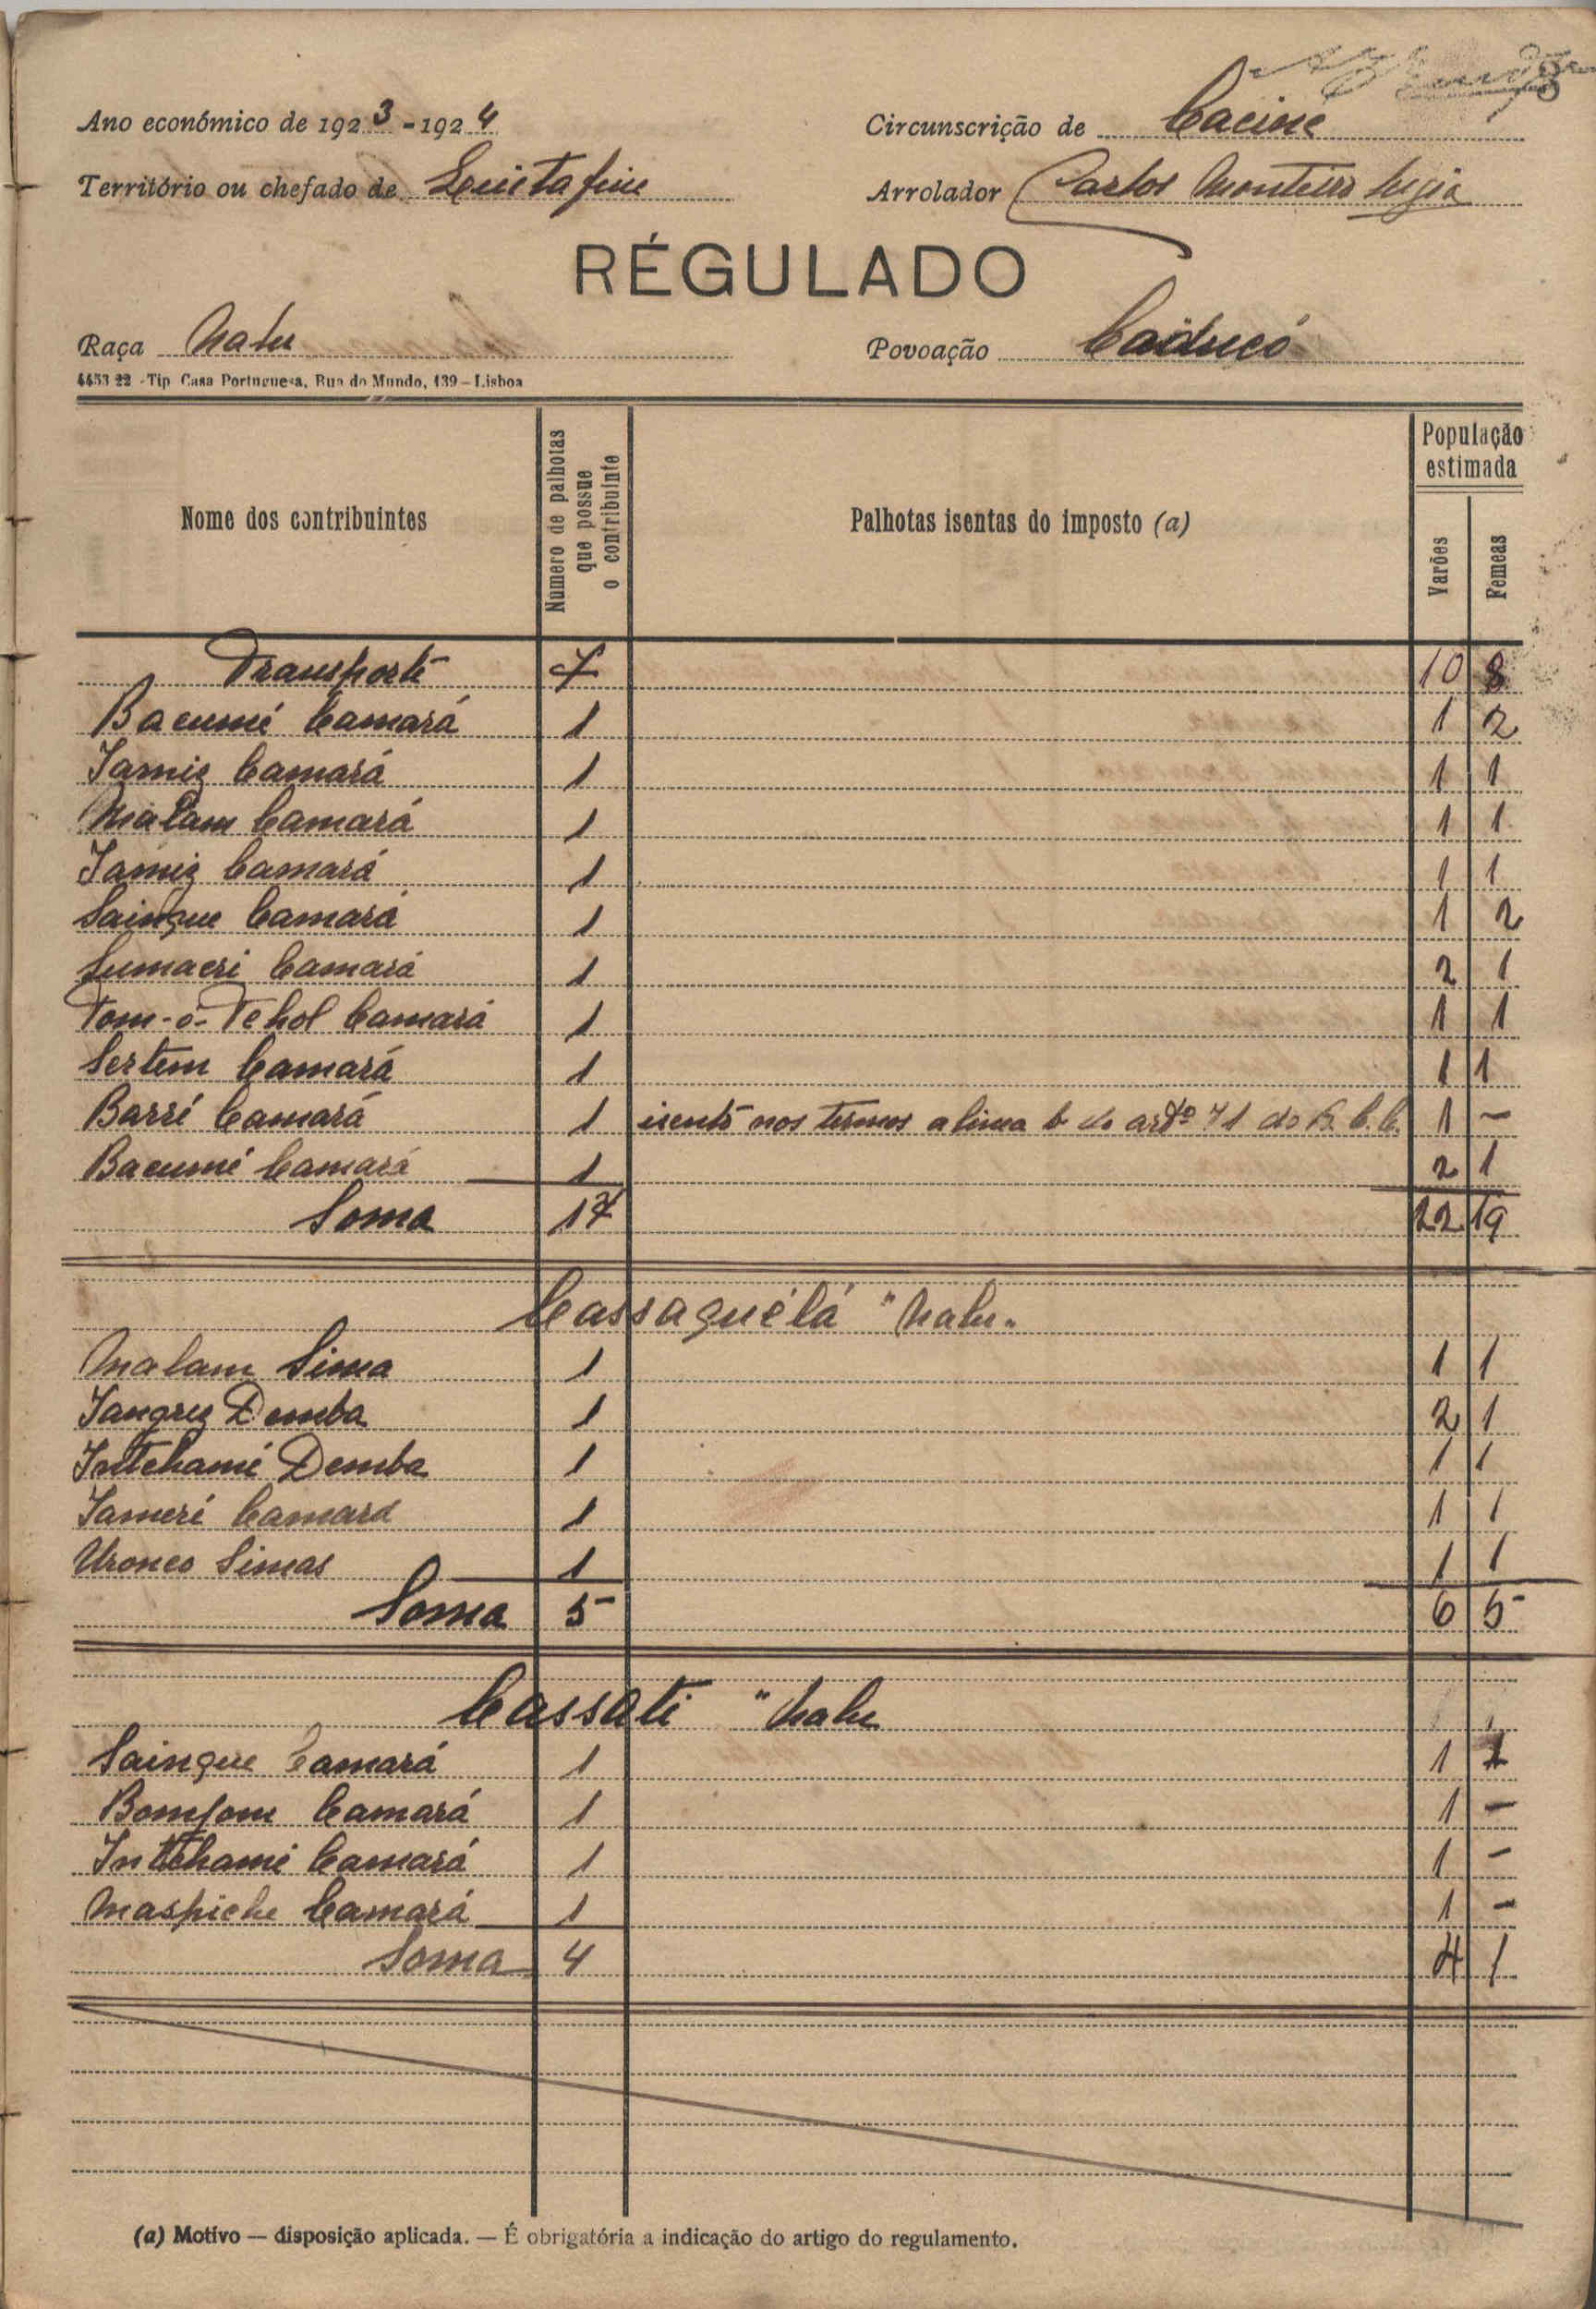 8
Ano económico de 1923-1924 Circunscrição de Cacine
Território ou chefado de Quitafine Arrolador Carlos Monteiro
RÉGULADO
Raça Nalu Povoação Caiducó
4453 22 - Tip Casa Portuguesa, Rua do Mundo, 139 – Lisboa
Nome dos contribuintes Número de palhotas que possue o contribuinte Palhotas isentas do imposto (a) População estimada
Varões Femeas
Transporte 7 10 8
Bacumé Camará 1 1 2
Jamiz Camará 1 1 1
Malam Camará 1 1 1
Jamiz Camará 1 1 1
Saingue Camará 1 1 2
Sumacri Camará 1 2 1
Tom-ó-Tchol Camará 1 1 1
Sertem Camará 1 1 1
Barri Camará 1 isento nos termos alinea b do artº 71 do R. C. C. 1 –
Bacumé Camará 1 2 1
Soma 17 22 19
Cassaquélá " Nalu "
Malam Sima 1 1 1
Tangriz Demba 1 2 1
Intchamé Demba 1 1 1
Jameri Camará 1 1 1
Uronco Simas 1 1 1
Soma 5 6 5
Cassati " Nalu
Saingue Camará 1 1 1
Bomfom Camará 1 1 –
Intchamé Camará 1 1 –
Maspiche Camará 1 1 –
Soma 4 4 1
(a) Motivo — disposição aplicada. — É obrigatória a indicação do artigo do regulamento.